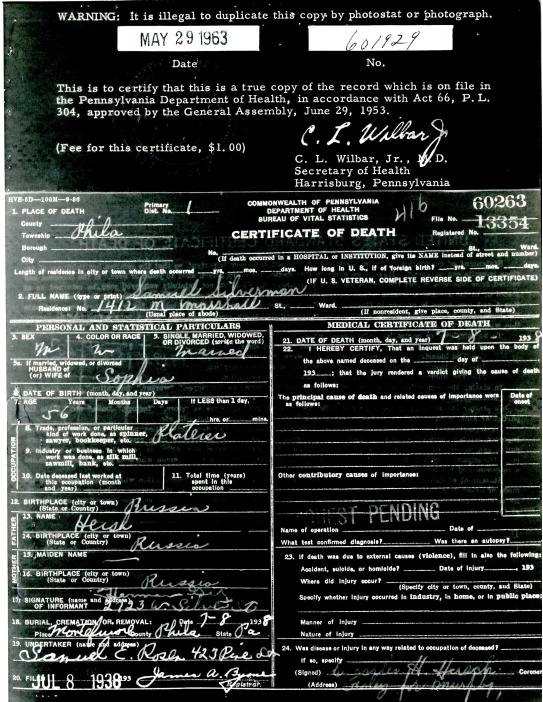 WARNING: It is illegal to duplicate this copy by photostat or photograph.
MAY 29 1963
601929
Date No.
This is to certify that this is a true copy of the record which is on file in
the Pennsylvania Department of Health, in accordance with Act 66, P. L.
304, approved by the General Assembly, June 29, 1953.
C. L. Wilbar Jr
(Fee for this certificate, $1.00)
C. L. Wilbar, Jr., M.D.
Secretary of Health
Harrisburg, Pennsylvania
HVS-5D—100M—9-36
COMMONWEALTH OF PENNSYLVANIA
DEPARTMENT OF HEALTH
BUREAU OF VITAL STATISTICS
CERTIFICATE OF DEATH
416
60263
File No. 13354
Registered No.
1. PLACE OF DEATH
Primary Dist. No. 1
County
Township Phila
Borough
City No. St., Ward.
(If death occurred in a HOSPITAL or INSTITUTION, give its NAME instead of street and number)
Length of residence in city or town where death occurred yrs. mos. days. How long in U. S., if of foreign birth? yrs. mos. days.
(IF U. S. VETERAN, COMPLETE REVERSE SIDE OF CERTIFICATE)
2. FULL NAME (type or print) Samuel Silverman
Residence: No. 1412 N Marshall St., Ward.
(Usual place of abode) (If nonresident, give place, county, and State)
PERSONAL AND STATISTICAL PARTICULARS
3. SEX M
4. COLOR OR RACE W
5. SINGLE, MARRIED, WIDOWED, OR DIVORCED (write the word) Married
5a. If married, widowed, or divorced
HUSBAND of
(or) WIFE of Sophia
6. DATE OF BIRTH (month, day, and year)
7. AGE Years Months Days If LESS than 1 day,
56 hrs. or mins.
OCCUPATION
8. Trade, profession, or particular
kind of work done, as spinner,
sawyer, bookkeeper, etc.
9. Industry or business in which
work was done, as silk mill,
sawmill, bank, etc.
10. Date deceased last worked at
this occupation (month
and year)
11. Total time (years)
spent in this
occupation
12. BIRTHPLACE (city or town)
(State or Country) Russia
FATHER
13. NAME Hersh
14. BIRTHPLACE (city or town)
(State or Country) Russia
MOTHER
15. MAIDEN NAME
16. BIRTHPLACE (city or town)
(State or Country) Russia
17. SIGNATURE (name and address)
OF INFORMANT
18. BURIAL, CREMATION, OR REMOVAL: Date 7-8 1938
Place County Phila State Pa
19. UNDERTAKER (name and address)
Samuel C. Rosen
20. FILED JUL 8 1938 193 James A. Byrne
Registrar.
MEDICAL CERTIFICATE OF DEATH
21. DATE OF DEATH (month, day, and year) 7-8- 1938
22. I HEREBY CERTIFY, That an inquest was held upon the body of
the above named deceased on the day of
193 ; that the jury rendered a verdict giving the cause of death
as follows:
The principal cause of death and related causes of importance were
as follows:
Date of onset
Other contributory causes of importance:
PENDING
Name of operation Date of
What test confirmed diagnosis? Was there an autopsy?
23. If death was due to external causes (violence), fill in also the following:
Accident, suicide, or homicide? Date of injury , 193
Where did injury occur?
(Specify city or town, county, and State)
Specify whether injury occurred in industry, in home, or in public place:
Manner of injury
Nature of injury
24. Was disease or injury in any way related to occupation of deceased?
If so, specify
(Signed) Coroner
(Address)